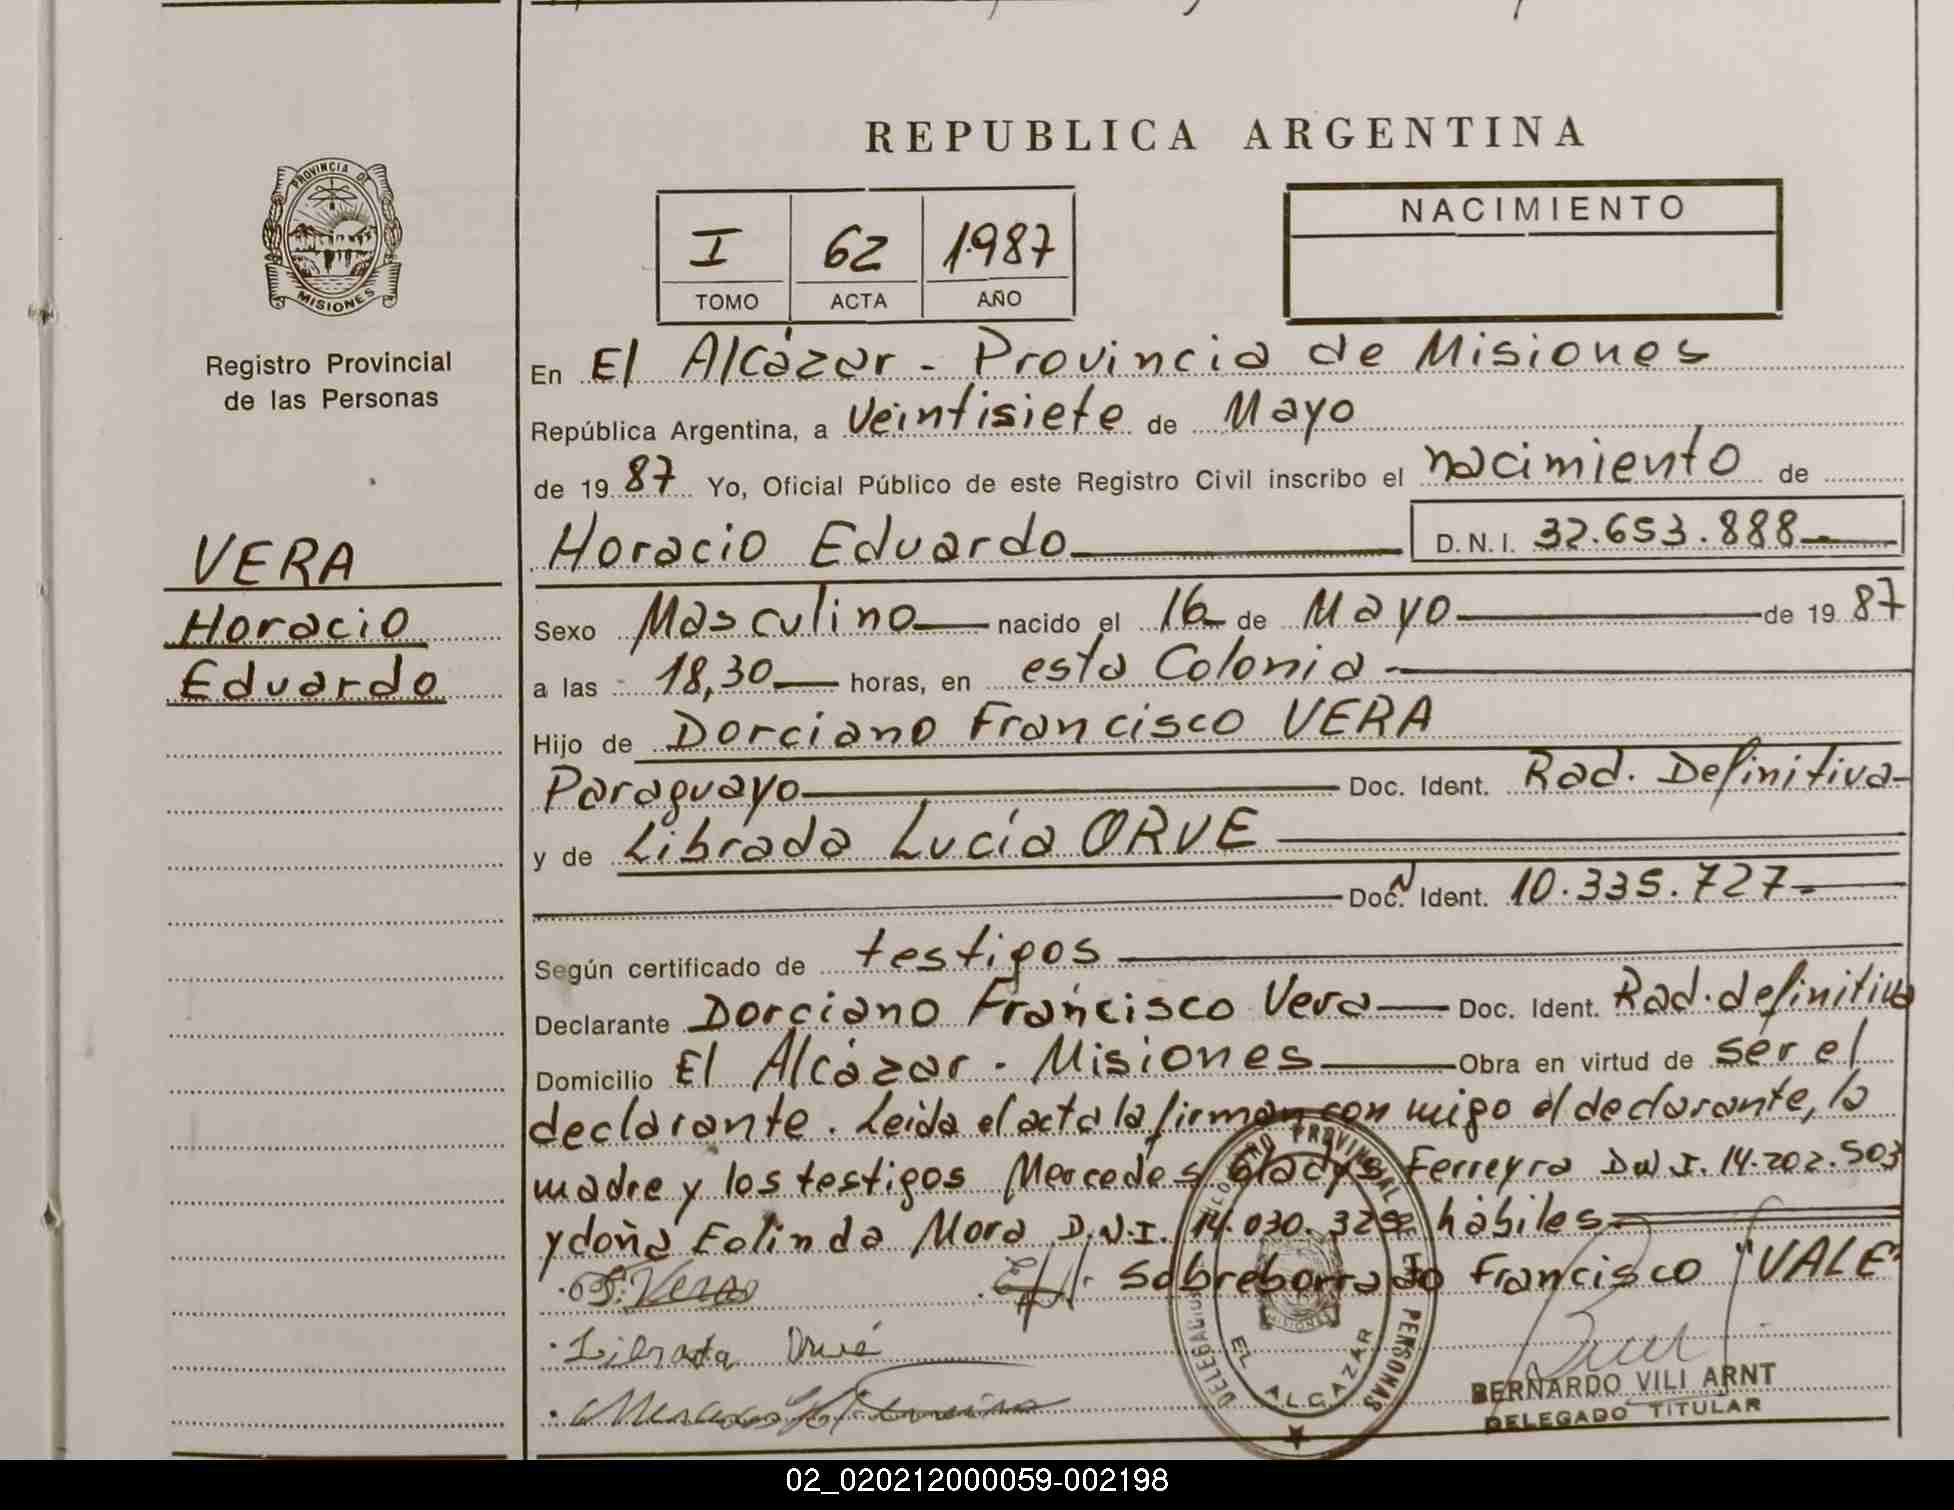 REPUBLICA ARGENTINA
PROVINCIA DE
MISIONES
Registro Provincial
de las Personas
I 62 1987
TOMO ACTA AÑO
NACIMIENTO
En El Alcázar - Provincia de Misiones
República Argentina, a Veintisiete de Mayo
de 1987 Yo, Oficial Público de este Registro Civil inscribo el nacimiento de
Horacio Eduardo D.N.I. 32.653.888
VERA
Horacio
Eduardo
Sexo Masculino nacido el 16 de Mayo de 1987
a las 18,30 horas, en esta Colonia
Hijo de Dorciano Francisco VERA
Paraguayo Doc. Ident. Rad. Definitiva
y de Librada Lucía ORVE
Doc. Ident. 10.335.727
Según certificado de testigos
Declarante Dorciano Francisco Vera Doc. Ident. Rad. definitiva
Domicilio El Alcázar - Misiones Obra en virtud de ser el
declarante. Leida el acta la firman con migo el declarante, la
madre y los testigos Mercedes Gladys Ferreyra D.N.I. 14.202.503
y doña Eolinda Mora D.N.I. 14.030.325 hábiles
Sobreborrado Francisco "VALE"
F. Vera
Librada Orvé
DELEGACION
REGISTRO PROVINCIAL DE PERSONAS
EL ALCAZAR
BERNARDO VILI ARNT
DELEGADO TITULAR
02_020212000059-002198